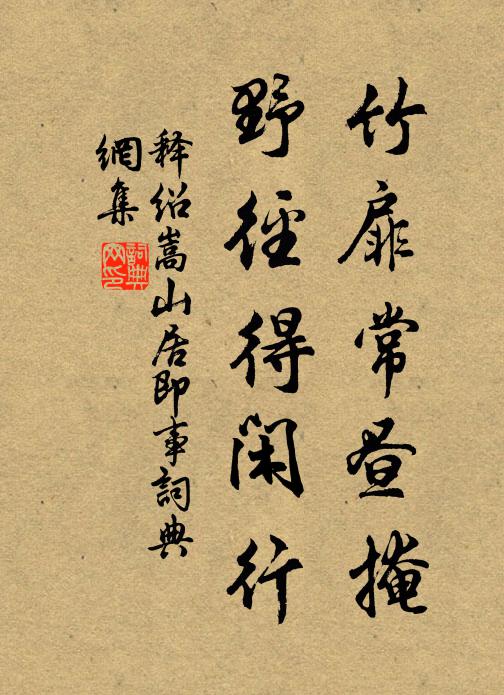 竹扉常昼掩
野径得閑行
释绍嵩山居即事詞典
網集
詞典
网印